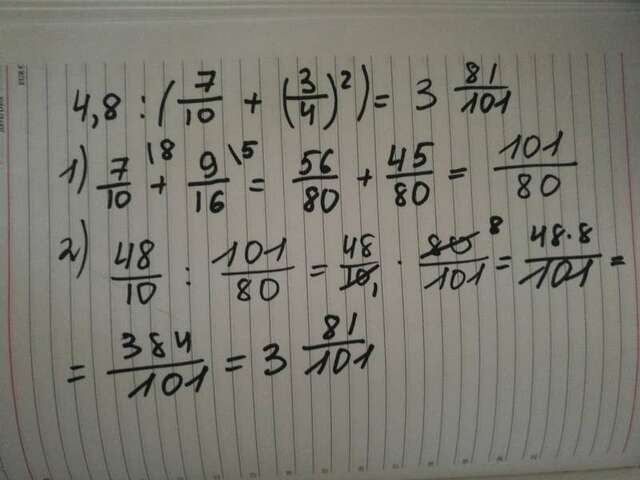 4,8 : (7/10 + (3/4)²) = 3 81/101
1) 7/10 \8 + 9/16 \5 = 56/80 + 45/80 = 101/80
2) 48/10 : 101/80 = 48/10 1 · 80 8/101 = 48·8/101 =
= 384/101 = 3 81/101